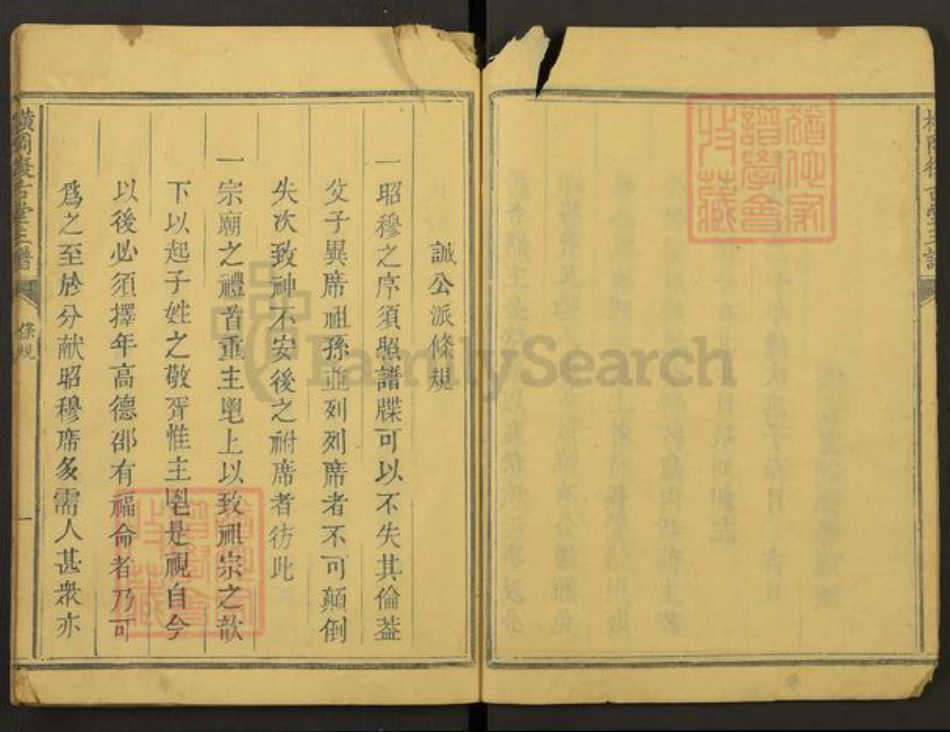 誠公派條規
一昭穆之序須照譜牒可以不失其倫葢
父子異席祖孫並列列席者不可顛倒
失次致神不安後之祔席者彷此
一宗廟之禮首重主鬯上以致祖宗之歆
下以起子姓之敬胥惟主鬯是視自今
以後必須擇年高德邵有福命者乃可
爲之至於分献昭穆席多需人甚衆亦
條規
一
FamilySearch
譜學會
收藏